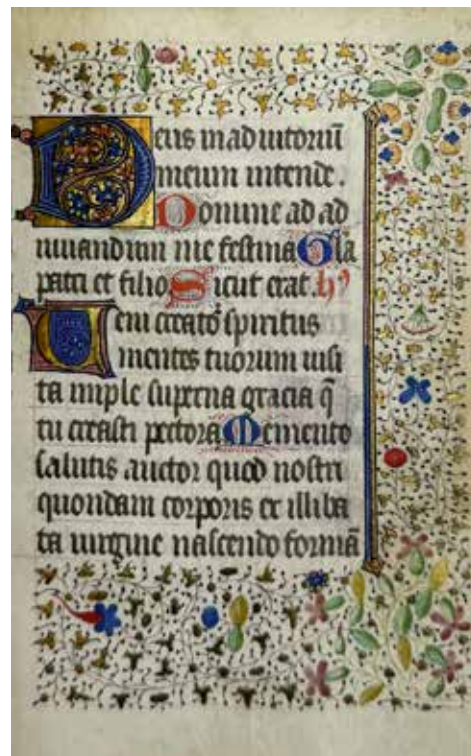 Deus in adiutoriū
meum intende.
Domine ad ad
iuuandum me festina Gla
patri et filio Sicut erat. hʼ
Ueni creatoꝛ spiritus
mentes tuorum uisi
ta imple superna gracia q̄
tu creasti pectora Memento
salutis auctor quod nostri
quondam corporis ex illiba
ta uirgine nascendo formā